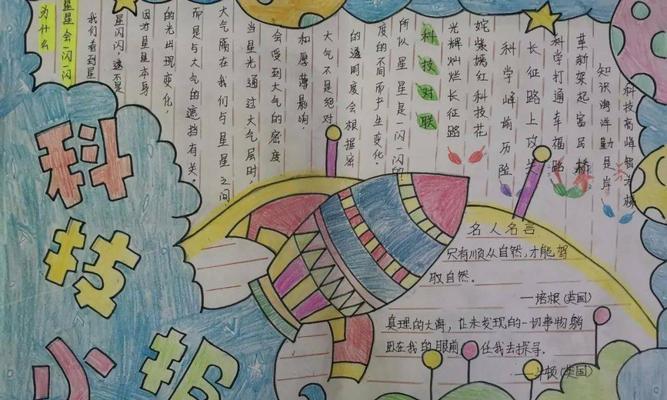 科技小报
为什么
星星会一闪一闪
我们看到星
星闪闪,这不是
因为星星本身
的光出现变化,
而是与大气的遮挡有关。
大气隔在我们与星星之间,
当星光通过大气层时,
会受到大气的密度
和厚薄影响,
大气不是绝对
的透明度会根据密
度的不同而产生变化,
所以星星是一闪一闪的
科技对联
光辉灿烂长征路
姹紫嫣红科技花
科学峰前历险
长征路上攻关
科学打通幸福路
革新架起富民桥
知识海洋勤是岸
科技高峰智为梯
名人名言
只有顺从自然,才能驾
驭自然.
——培根(英国)
真理的大海,让未发现的一切事物躺
卧在我的眼前 任我去探寻.
——牛顿(英国)